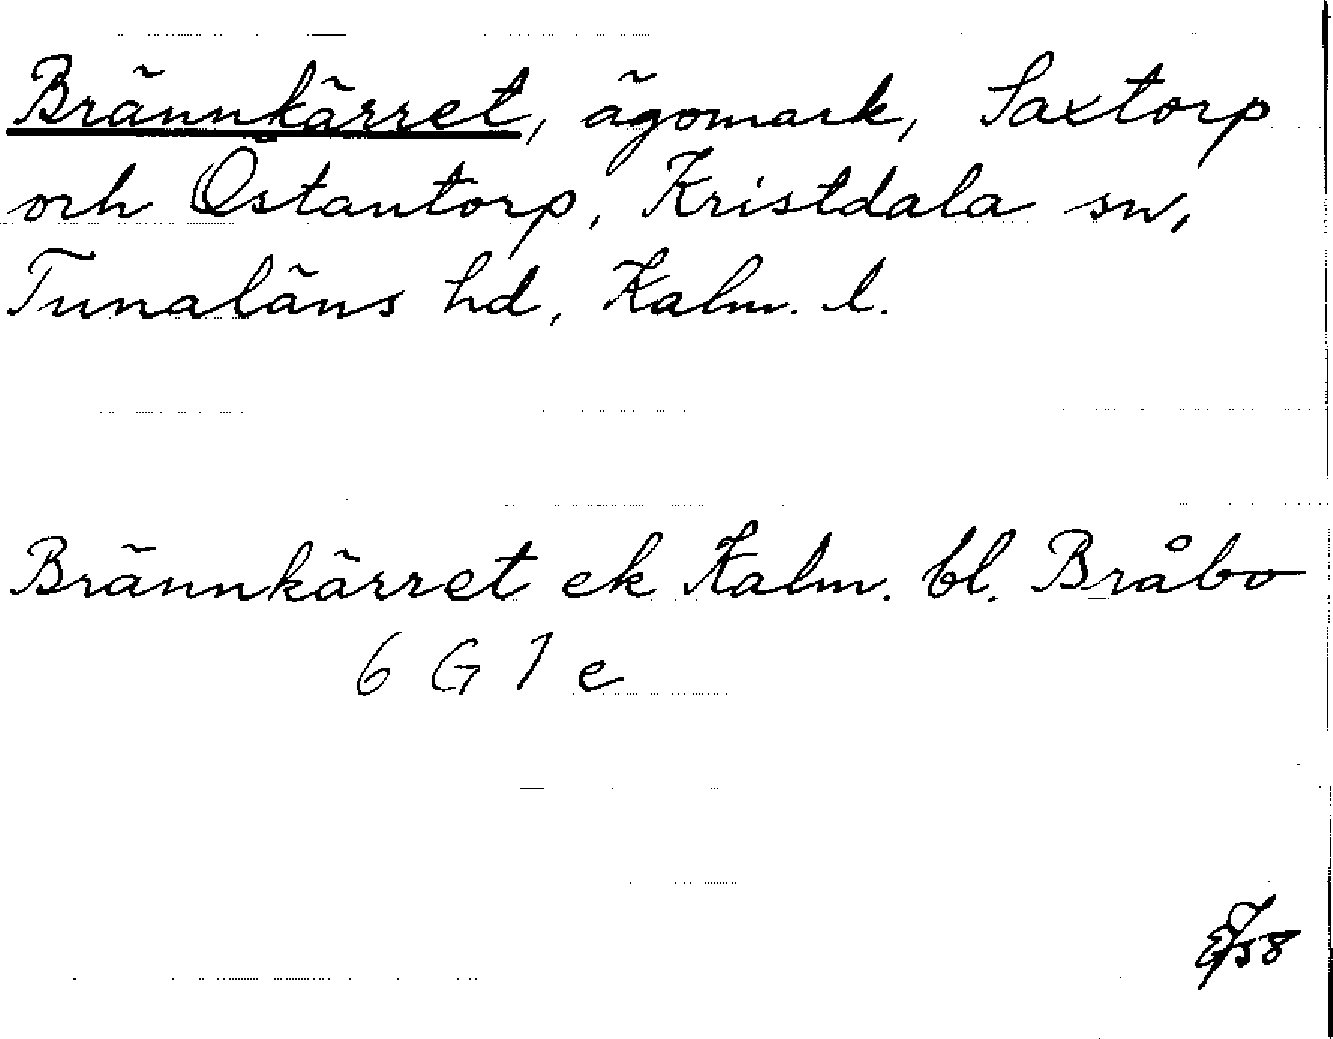 Brännkärret, ägomark, Saxtorp
och Östantorp, Kristdala sn,
Tunaläns hd, Kalm. l.
Brännkärret ek Kalm. bl. Bråbo
6 G 1 e
58